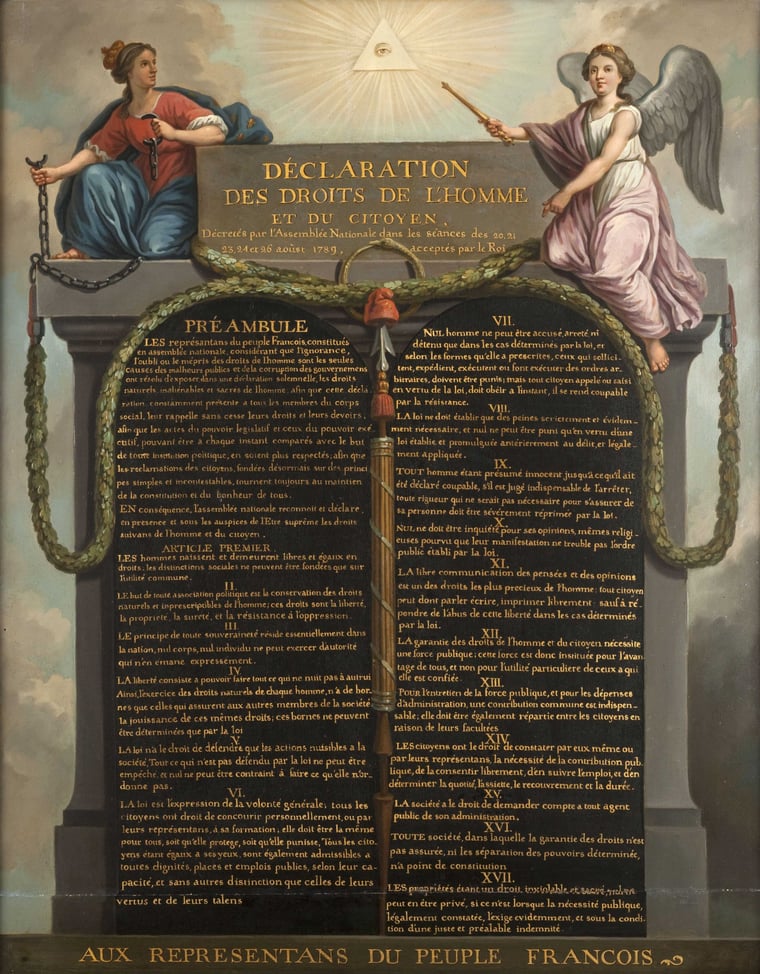 DÉCLARATION
DES DROITS DE L'HOMME
ET DU CITOYEN,
Décretés par l'Assemblée Nationale dans les séances des 20, 21
23, 24 et 26 août 1789, acceptés par le Roi
PRÉAMBULE
LES représentans du peuple François, constitués
en assemblée nationale, considérant que l'ignorance,
l'oubli ou le mépris des droits de l'homme sont les seules
causes des malheurs publics et de la corruption des gouvernemens
ont résolu d'exposer dans une déclaration solemnelle, les droits
naturels inaliénables et sacrés de l'homme; afin que cette décla
ration, constamment présente a tous les membres du corps
social, leur rappelle sans cesse leurs droits et leurs devoirs;
afin que les actes du pouvoir législatif et ceux du pouvoir exé
cutif, pouvant être a chaque instant comparés avec le but
de toute institution politique, en soient plus respectés; afin que
les reclamations des citoyens, fondées désormais sur des princi
pes simples et incontestables, tournent toujours au maintien
de la constitution et du bonheur de tous.
EN conséquence, l'assemblée nationale reconnoit et déclare,
en presence et sous les auspices de l'Etre suprême les droits
suivans de l'homme et du citoyen.
ARTICLE PREMIER.
LES hommes naissent et demeurent libres et égaux en
droits. les distinctions sociales ne peuvent être fondées que sur
l'utilité commune.
II.
LE but de toute association politique est la conservation des droits
naturels et inprescriptibles de l'homme; ces droits sont la liberté,
la propriété, la sureté, et la résistance à l'oppression.
III.
LE principe de toute souveraineté réside essentiellement dans
la nation, nul corps, nul individu ne peut exercer d'autorité
qui n'en émane expressément.
IV
LA liberté consiste a pouvoir faire tout ce qui ne nuit pas à autrui
Ainsi, l'exercice des droits naturels de chaque homme, n'a de bor
nes que celles qui assurent aux autres membres de la société
la jouissance de ces mêmes droits; ces bornes ne peuvent
être déterminées que par la loi
V.
LA loi n'a le droit de défendre que les actions nuisibles a la
société, Tout ce qui n'est pas défendu par la loi ne peut être
empêché, et nul ne peut être contraint à faire ce qu'elle n'or-
donne pas.
VI.
LA loi est l'expression de la volonté générale; tous les
citoyens ont droit de concourir personnellement, ou par
leurs représentans, à sa formation; elle doit être la même
pour tous, soit qu'elle protege, soit qu'elle punisse, Tous les cito
yens étant égaux à ses yeux, sont également admissibles a
toutes dignités, places et emplois publics, selon leur ca-
pacité, et sans autres distinction que celles de leurs
vertus et de leurs talens
VII.
NUL homme ne peut être accusé, arreté, ni
détenu que dans les cas déterminés par la loi, et
selon les formes qu'elle a prescrites, ceux qui sollici-
tent, expédient, exécutent ou font exécuter des ordres ar-
bitraires, doivent être punis; mais tout citoyen appelé ou saisi
en vertu de la loi, doit obéir a l'instant, il se rend coupable
par la résistance.
VIII.
LA loi ne doit établir que des peines strictement et évidem-
ment nécessaire, et nul ne peut être puni qu'en vertu d'une
loi établie et promulguée antérieurement au délit, et légale-
ment appliquée.
IX.
TOUT homme étant présumé innocent jusqu'à ce qu'il ait
été déclaré coupable, s'il est jugé indispensable de l'arrêter,
toute rigueur qui ne serait pas nécessaire pour s'assurer de
sa personne doit être sévèrement réprimée par la loi.
X.
NUL ne doit être inquiété pour ses opinions, mêmes religi-
euses pourvu que leur manifestation ne trouble pas l'ordre
public établi par la loi.
XI.
LA libre communication des pensées et des opinions
est un des droits les plus precieux de l'homme: tout citoyen
peut dont parler écrire, imprimer librement: sauf à ré-
pondre de l'abus de cette liberté dans les cas déterminés
par la loi.
XII.
LA garantie des droits de l'homme et du citoyen nécessite
une force publique: cette force est donc instituée pour l'avan
tage de tous, et non pour l'utilité particuliere de ceux a qui
elle est confiée.
XIII.
POUR l'entretien de la force publique, et pour les dépenses
d'administration, une contribution commune est indispen-
sable; elle doit être également répartie entre les citoyens en
raison de leurs facultées
XIV.
LES citoyens ont le droit de constater par eux même ou
par leurs représentans, la nécessité de la contribution pub-
lique, de la consentir librement, d'en suivre l'emploi, et d'en
déterminer la quotité, l'assiette, le recouvrement et la durée.
XV.
LA société a le droit de demander compte a tout agent
public de son administration.
XVI.
TOUTE société, dans laquelle la garantie des droits n'est
pas assurée, ni les séparation des pouvoirs déterminée,
n'a point de constitution
XVII.
LES propriétés étant un droit inviolable et sacré, nul ne
peut en être privé, si ce n'est lorsque la nécessité publique,
légalement constatée, l'exige evidemment, et sous la condi-
tion d'une juste et préalable indemnité.
AUX REPRESENTANS DU PEUPLE FRANCOIS